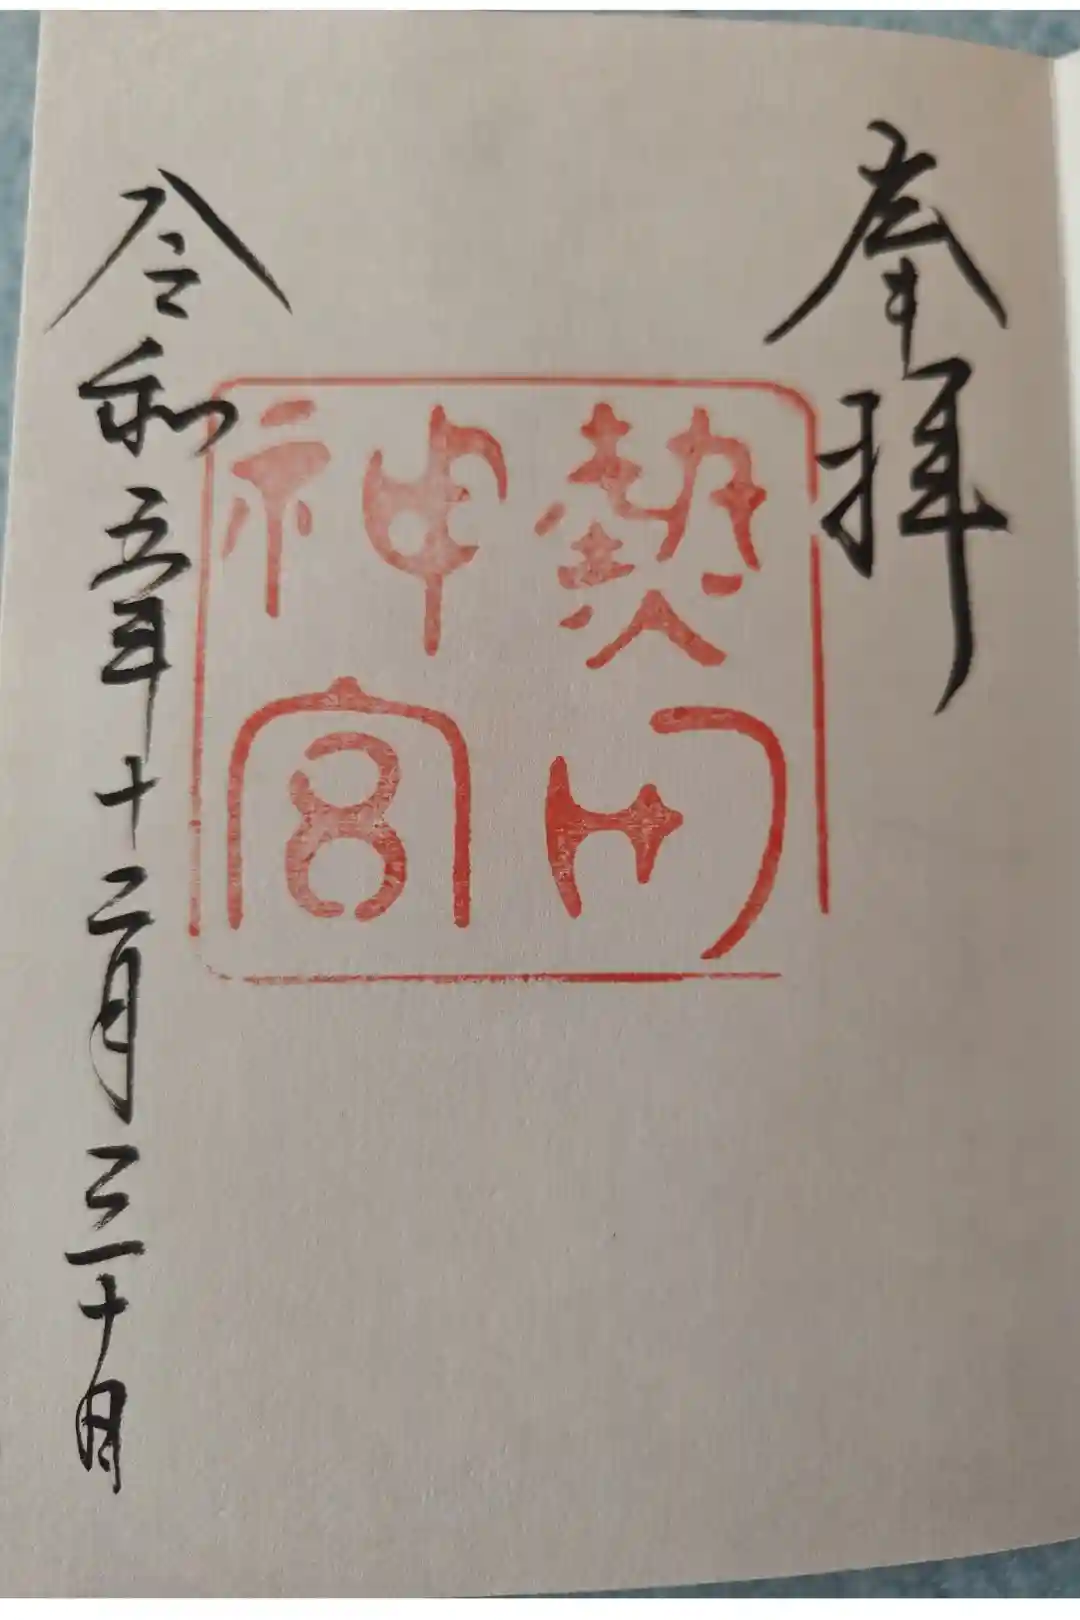 奉拝
熱田
神宮
令和五年十二月三十日